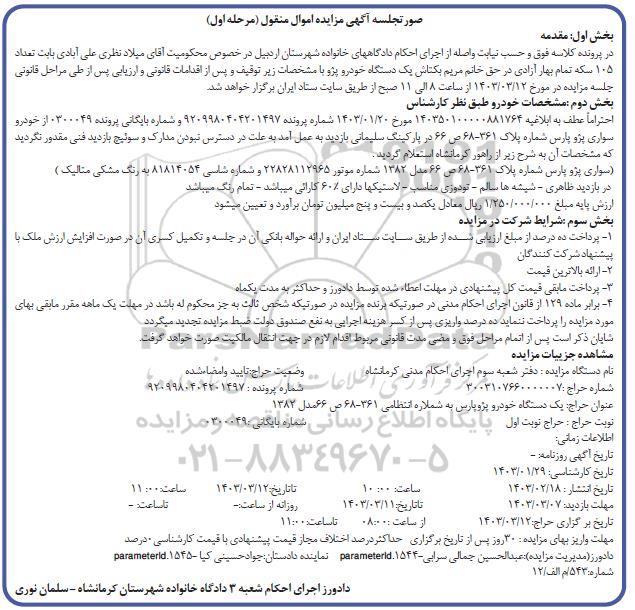 صورتجلسه آگهی مزایده اموال منقول (مرحله اول)
بخش اول: مقدمه
در پرونده کلاسه فوق و حسب نیابت واصله از اجرای احکام دادگاههای خانواده شهرستان اردبیل در خصوص محکومیت آقای میلاد نظری علی آبادی بابت تعداد
۱۰۵ سکه تمام بهار آزادی در حق خانم مریم بکتاش یک دستگاه خودرو پژو با مشخصات زیر توقیف و پس از اقدامات قانونی و ارزیابی پس از طی مراحل قانونی
جلسه مزایده در مورخ ۱۴۰۳/۰۳/۱۲ از ساعت ۸ الی ۱۱ صبح از طریق سایت ستاد ایران برگزار خواهد شد.
بخش دوم :مشخصات خودرو طبق نظر کارشناس
احتراماً عطف به ابلاغیه ۱۴۰۳۵۰۱۰۰۰۰۰۸۸۱۷۶۴ مورخ ۱۴۰۳/۰۱/۲۰ شماره پرونده ۹۲۰۹۹۸۰۴۰۴۲۰۱۴۹۷ و شماره بایگانی پرونده ۰۳۰۰۰۴۹ از خودرو
سواری پژو پارس شماره پلاک ۳۶۱-۶۸ ص ۶۶ در پارکینگ سلیمانی بازدید به عمل آمد به علت در دسترس نبودن مدارک و سوئیچ بازدید فنی مقدور نگردید
که مشخصات آن به شرح زیر از راهور کرمانشاه استعلام گردید .
(سواری پژو پارس شماره پلاک ۳۶۱-۶۸ ص ۶۶ مدل ۱۳۸۲ شماره موتور ۲۲۸۲۸۱۱۲۹۶۵ و شماره شاسی ۸۱۸۱۴۰۵۴ به رنگ مشکی متالیک )
در بازدید ظاهری - شیشه ها سالم - تودوزی مناسب - لاستیکها دارای ۶۰٪ کارائی میباشد - تمام رنگ میباشد
ارزش پایه مبلغ ۱/۲۵۰/۰۰۰/۰۰۰ ریال معادل یکصد و بیست و پنج میلیون تومان برآورد و تعیین میشود
بخش سوم :شرایط شرکت در مزایده
۱- پرداخت ده درصد از مبلغ ارزیابی شده از طریق سایت ستاد ایران و ارائه حواله بانکی آن در جلسه و تکمیل کسری آن در صورت افزایش ارزش ملک با
پیشنهاد شرکت کنندگان
۲-ارائه بالاترین قیمت
۳- پرداخت مابقی قیمت کل پیشنهادی در مهلت اعطاء شده توسط دادورز و حداکثر به مدت یکماه
۴- برابر ماده ۱۲۹ از قانون اجرای احکام مدنی در صورتیکه برنده مزایده در صورتیکه شخص ثالث به جز محکوم له باشد در مهلت یک ماهه مقرر مابقی بهای
مورد مزایده را پرداخت ننماید ده درصد واریزی پس از کسر هزینه اجرایی به نفع صندوق دولت ضبط مزایده تجدید میگردد
شایان ذکر است پس از اتمام مراحل فوق و مضی مدت قانونی مربوط اقدام لازم در جهت انتقال مالکیت صورت خواهد گرفت.
مشاهده جزییات مزایده
نام دستگاه مزایده : دفتر شعبه سوم اجرای احکام مدنی کرمانشاه وضعیت حراج:تایید وامضاءشده
شماره حراج :۳۰۰۳۱۰۷۶۶۰۰۰۰۰۰۷ شماره پرونده : ۹۲۰۹۹۸۰۴۰۴۲۰۱۴۹۷
عنوان حراج: یک دستگاه خودرو پژوپارس به شملاره انتظامی ۳۶۱-۶۸ ص ۶۶مدل ۱۳۸۲
نوبت حراج : حراج نوبت اول شماره بایگانی :۰۳۰۰۰۴۹
اطلاعات زمانی:
تاریخ آگهی روزنامه: -
تاریخ کارشناسی: ۱۴۰۳/۰۱/۲۹
تاریخ انتشار : ۱۴۰۳/۰۲/۱۸ ساعت: ۰۰: ۱۰ تاتاریخ:۱۴۰۳/۰۳/۱۲ ساعت:۰۰: ۱۱
مهلت بازدید: ۱۴۰۳/۰۳/۰۷ تاتاریخ:۱۴۰۳/۰۳/۱۱ روزانه از ساعت:- تاساعت: -
تاریخ بر گزاری حراج:۱۴۰۳/۰۳/۱۲ از ساعت : ۰۸:۰۰ تاساعت:۱۱:۰۰
مهلت واریز بهای مزایده : ۳۰روز پس از تاریخ برگزاری حداکثردرصد اختلاف مجاز قیمت پیشنهادی با قیمت کارشناسی ۰درصد
دادورز(مدیریت مزایده):عبدالحسین جمالی سرابی-۱۵۴۴.parameterId نماینده دادستان:جوادحسینی کیا -۱۵۴۵.parameterId
شماره:۵۴۳/م الف/۱۲
دادورز اجرای احکام شعبه ۳ دادگاه خانواده شهرستان کرمانشاه - سلمان نوری
ParsNamadData
پایگاه اطلاع رسانی مناقصه و مزایده
۰۲۱-۸۸۳۴۹۶۷۰-۵